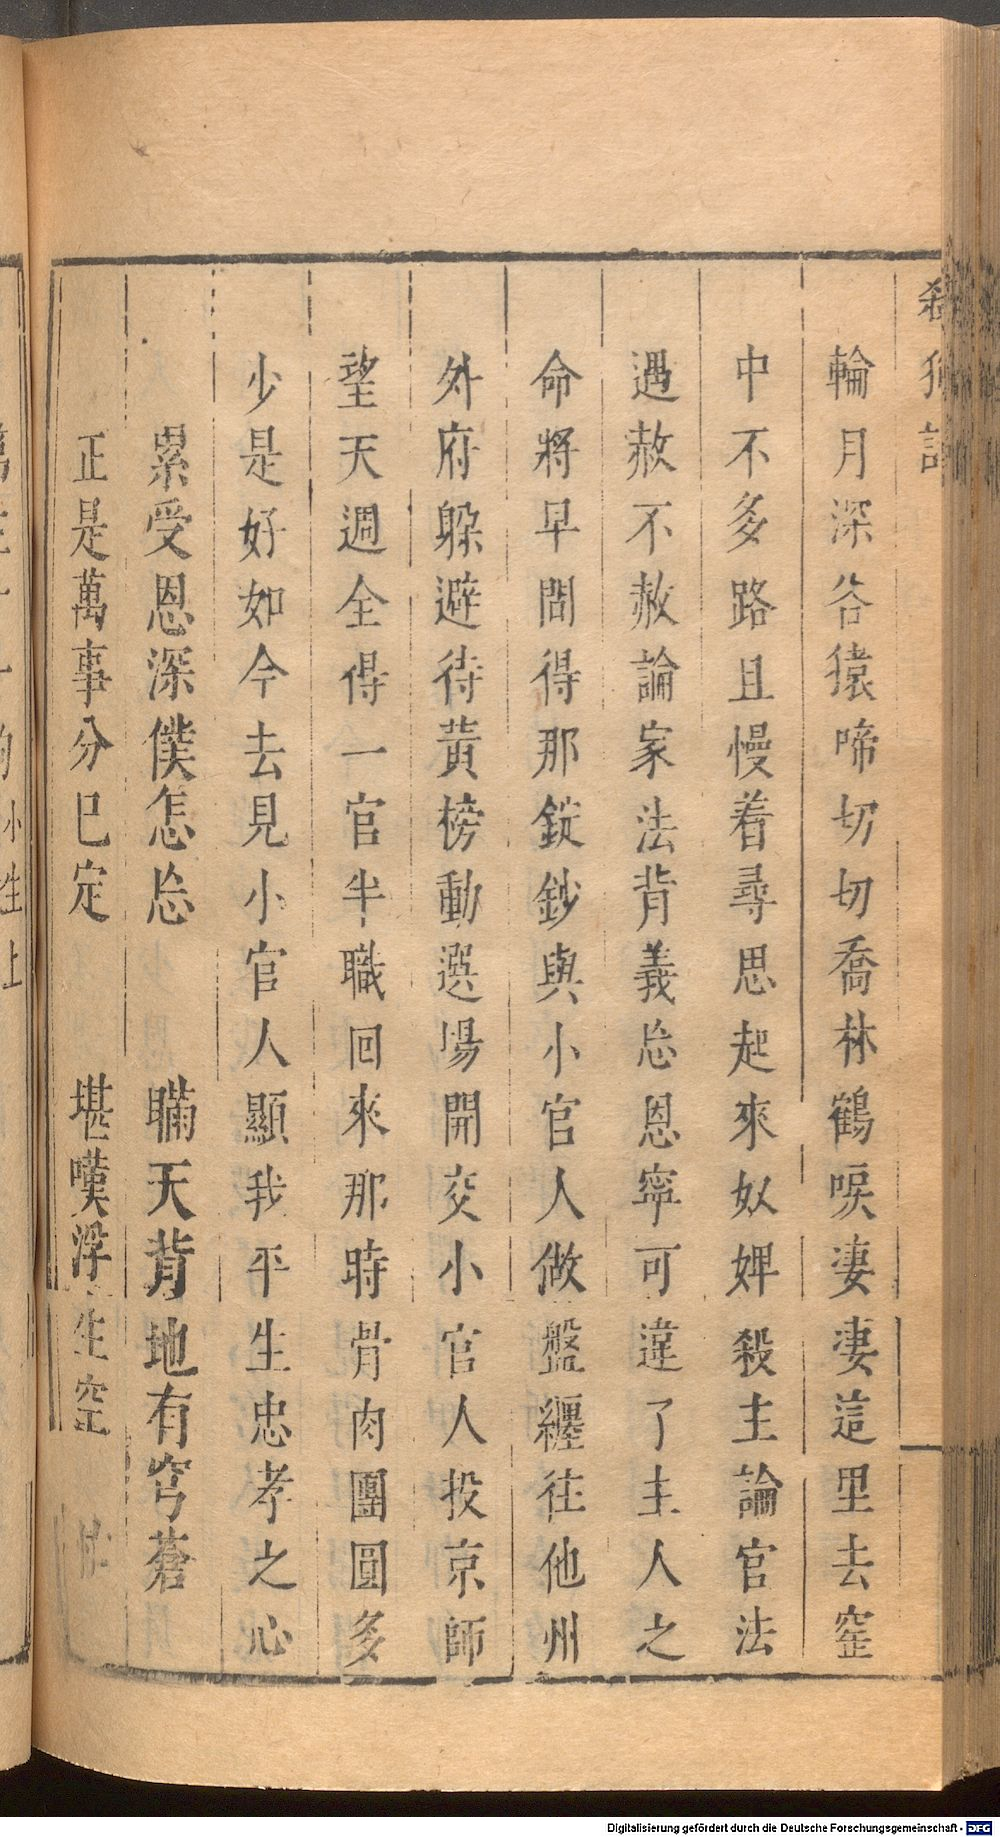 殺狗記
輪月深谷猿啼切切喬林鶴唳淒淒這里去窰
中不多路且慢着尋思起來奴婢殺主論官法
遇赦不赦論家法背義忘恩寧可違了主人之
命將早間得那錠鈔與小官人做盤纏往他州
外府躲避待黃榜動選塲開交小官人投京師
望天週全得一官半職回來那時骨肉團圓多
少是好如今去見小官人顯我平生忠孝之心
累受恩深僕怎忘　瞞天背地有穹蒼
正是萬事分已定　堪嘆浮生空
Digitalisierung gefördert durch die Deutsche Forschungsgemeinschaft - DFG